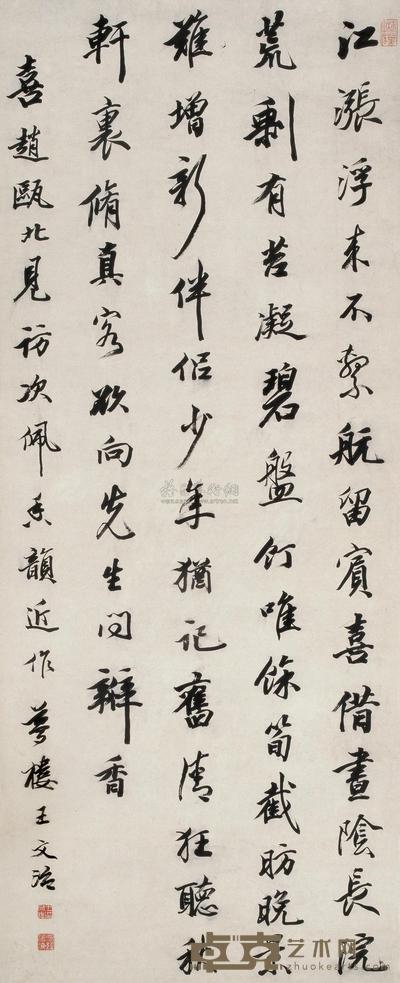 江漲浮来不繫航留賓喜借晝陰長院
荒剩有苔凝碧盤飣唯餘筍截肪晚景
難增新伴侶少年猶記舊清狂聽秋
軒裏脩真客欲向先生問瓣香
喜趙甌北見訪次佩香韻近作夢樓王文治
卓克艺术网